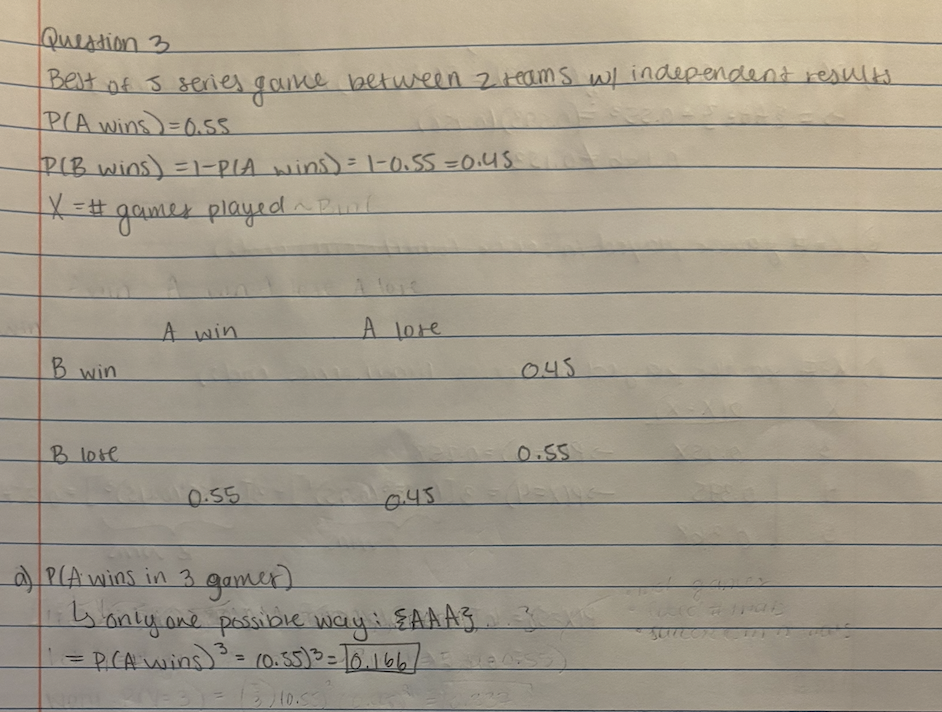 Question 3
Best of 5 series game between 2 teams w/ independent results
P(A wins)=0.55
P(B wins)=1-P(A wins)=1-0.55=0.45
X=# games played
A win A lose
B win 0.45
B lose 0.55
0.55 0.45
a) P(A wins in 3 games)
↳ only one possible way: {AAA}
= P(A wins)³ = (0.55)³ = 0.166